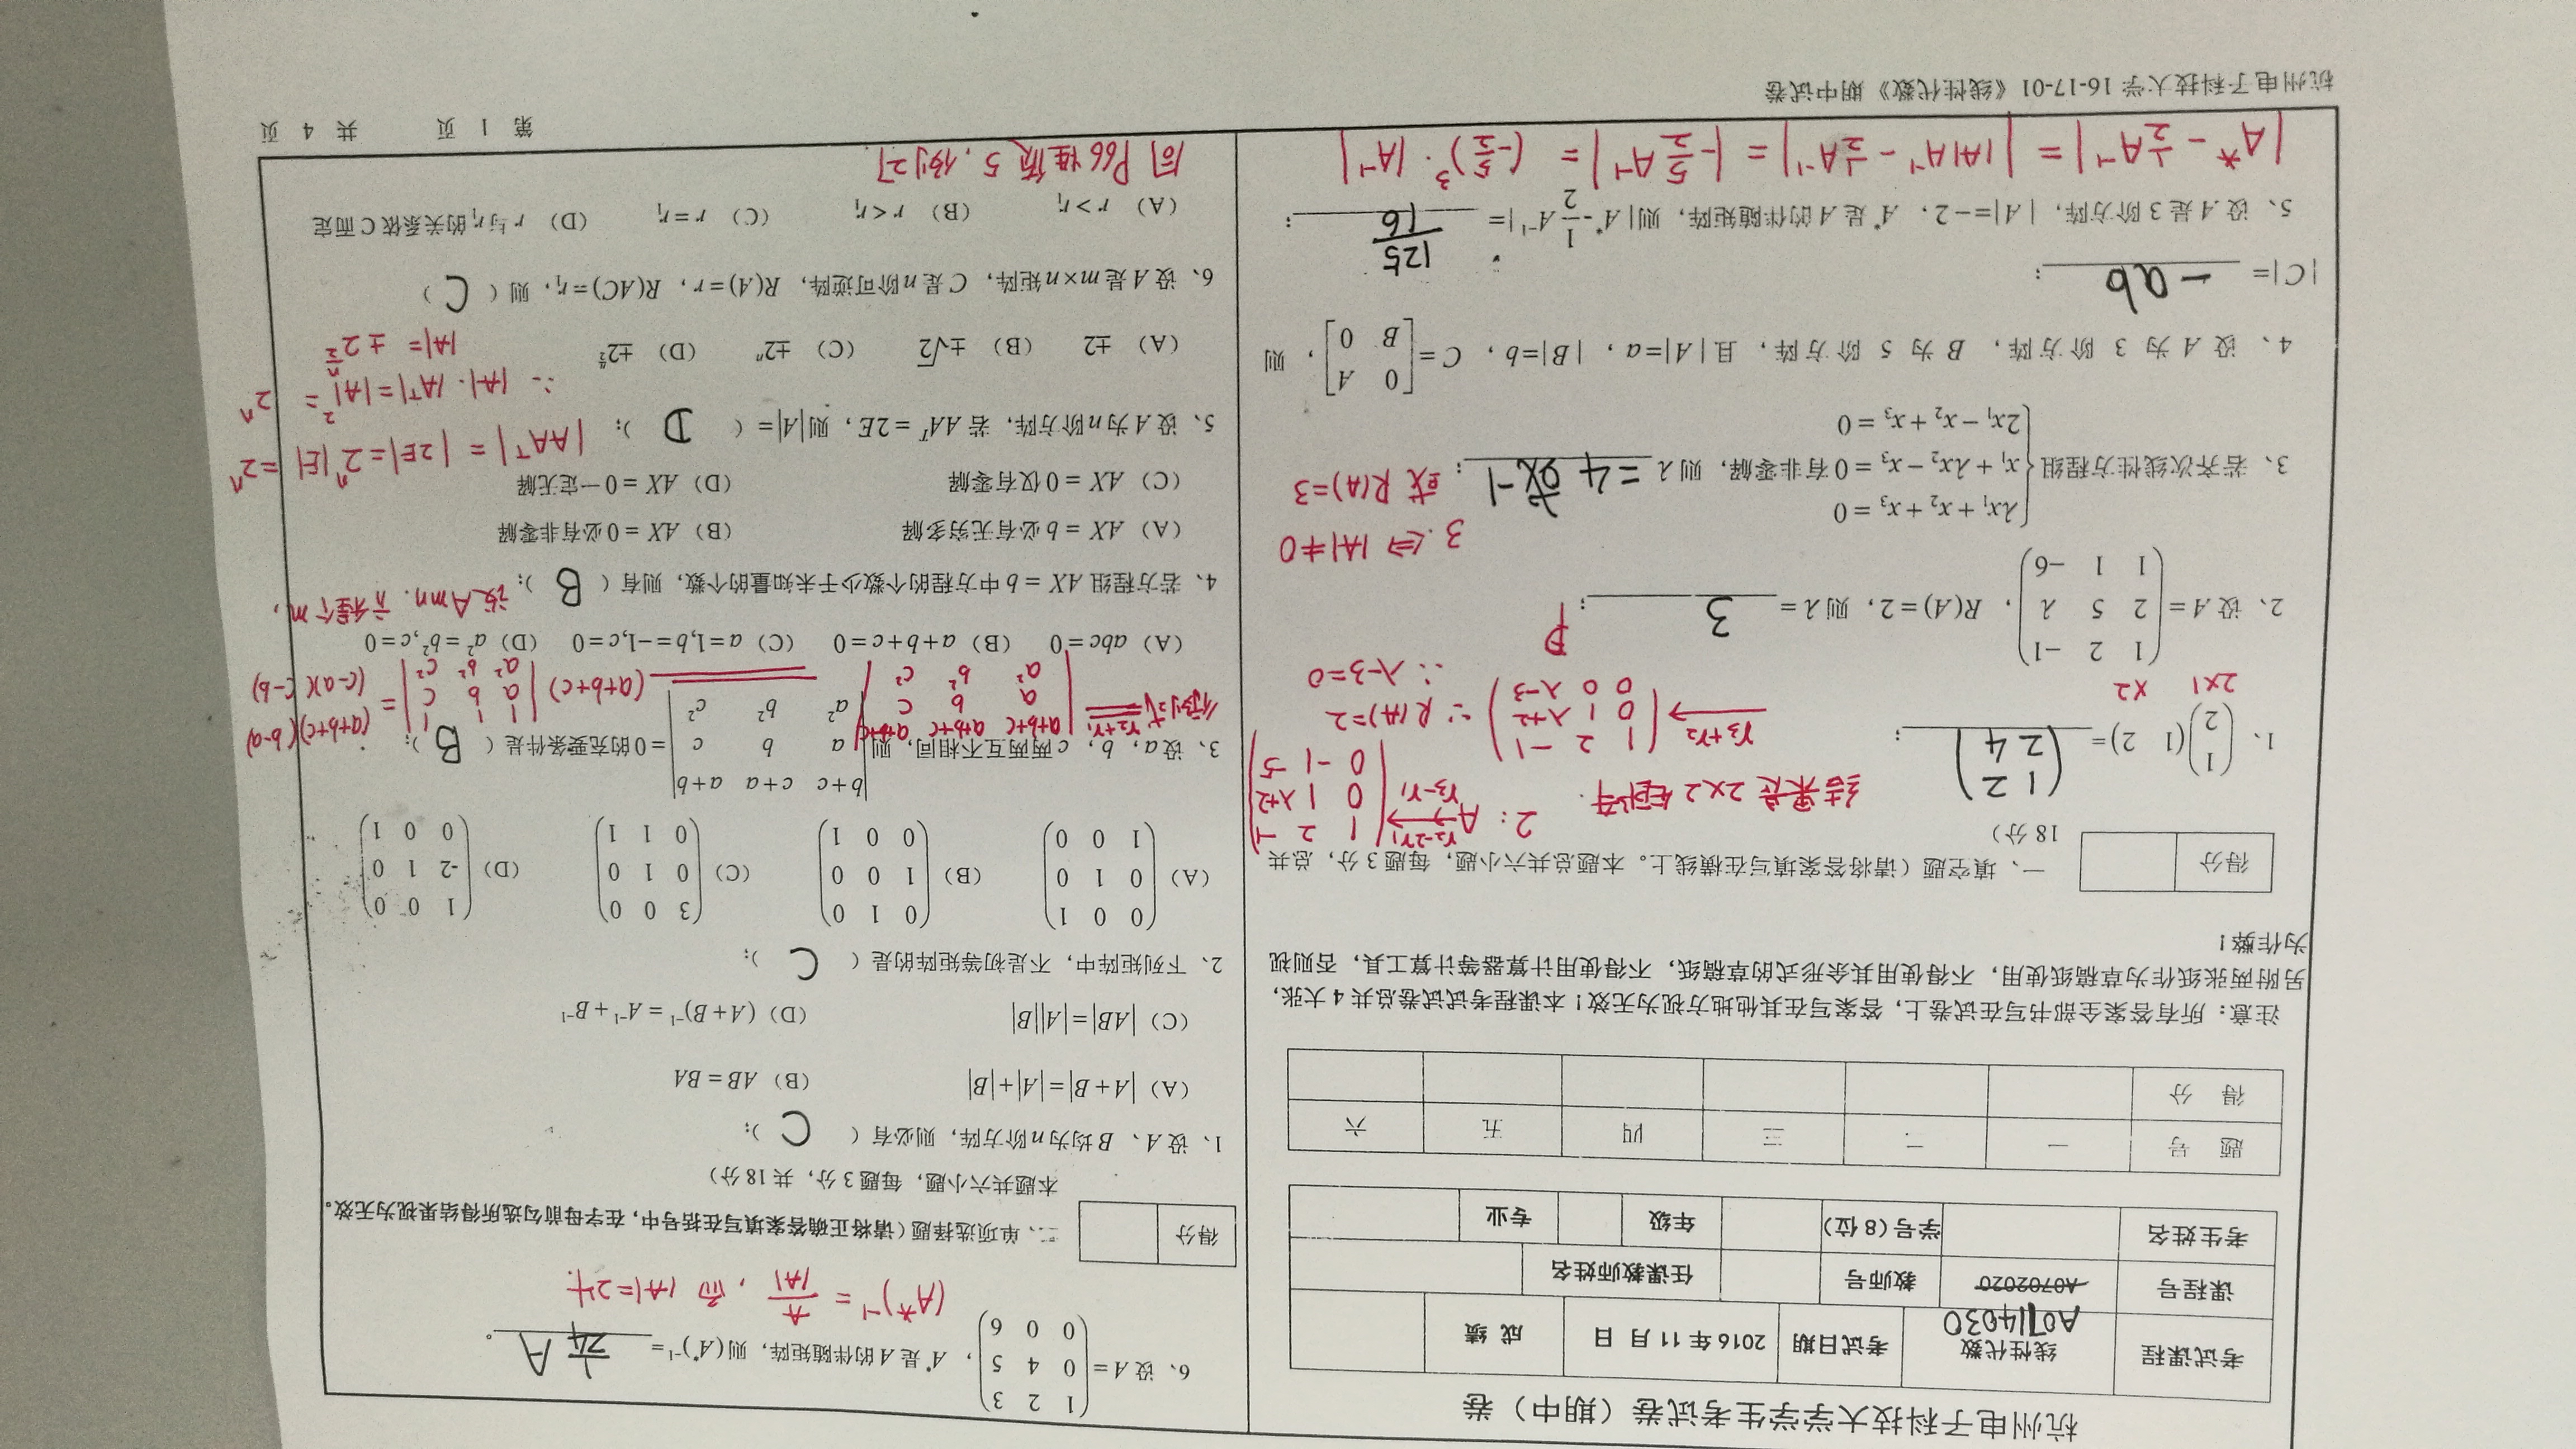 杭州电子科技大学学生考试卷（期中）卷
考试课程 线性代数 考试日期 2016年11月 日 成绩
A0714030
课程号 A0702020 教师号 任课教师姓名
考生姓名 学号(8位) 年级 专业
题 号 一 二 三 四 五 六
得 分
注意：所有答案全部书写在试卷上，答案写在其他地方视为无效！本课程考试试卷总共4大张，
另附两张纸作为草稿纸使用，不得使用其余形式的草稿纸，不得使用计算器等计算工具，否则视
为作弊！
得分
一、填空题（请将答案填写在横线上。本题总共六小题，每题3分，总共
18分）
结果是 2×2 矩阵.
2: A →(r2-2r1, r3-r1) (1 2 -1; 0 1 λ+2; 0 -1 -5)
→(r3+r2) (1 2 -1; 0 1 λ+2; 0 0 λ-3) ∵ R(A)=2
∴ λ-3=0
1、(1; 2)(1 2)= (1 2; 2 4) ;
2×1 ×2
2、设A=(1 2 -1; 2 5 λ; 1 1 -6)，R(A)=2，则λ= 3 ; P
3. ⇔ |A|≠0
或 R(A)=3
3、若齐次线性方程组{λx₁+x₂+x₃=0
x₁+λx₂-x₃=0有非零解，则λ =4 或-1 ;
2x₁-x₂+x₃=0
4、设A为3阶方阵，B为5阶方阵，且|A|=a，|B|=b，C=[0 A; B 0]，则
|C|= -ab ;
5、设A是3阶方阵，|A|=-2，A*是A的伴随矩阵，则|A*-1/2 A⁻¹|= 125/16 ;
|A*-1/2A⁻¹| = ||A|A⁻¹-1/2A⁻¹| = |-5/2A⁻¹| = (-5/2)³·|A⁻¹|
杭州电子科技大学16-17-01《线性代数》期中试卷
6、设A=(1 2 3; 0 4 5; 0 0 6)，A*是A的伴随矩阵，则(A*)⁻¹= 1/24 A 。
(A*)⁻¹ = A/|A| , 而 |A|=24.
得分
二、单项选择题（请将正确答案填写在括号中，在字母前勾选所得结果视为无效。
本题共六小题，每题3分，共18分）
1、设A、B均为n阶方阵，则必有（ C ）；
（A）|A+B|=|A|+|B| （B）AB=BA
（C）|AB|=|A||B| （D）(A+B)⁻¹=A⁻¹+B⁻¹
2、下列矩阵中，不是初等矩阵的是（ C ）；
（A）(0 0 1; 0 1 0; 1 0 0) （B）(0 1 0; 1 0 0; 0 0 1) （C）(3 0 0; 0 1 0; 0 1 1) （D）(1 0 0; -2 1 0; 0 0 1)
3、设a，b，c两两互不相同，则|b+c c+a a+b; a b c; a² b² c²|=0的充要条件是（ B ）；
行列式 =(r2+r1)= |a+b+c a+b+c a+b+c; a b c; a² b² c²| = (a+b+c)|1 1 1; a b c; a² b² c²| = (a+b+c)(b-a)
(c-a)(c-b)
（A）abc=0 （B）a+b+c=0 （C）a=1,b=-1,c=0 （D）a²=b²,c=0
4、若方程组AX=b中方程的个数少于未知量的个数，则有（ B ）； 设Amn. 方程个m,
（A）AX=b必有无穷多解 （B）AX=0必有非零解
（C）AX=0仅有零解 （D）AX=0一定无解
5、设A为n阶方阵，若AAᵀ=2E，则|A|=（ D ）； |AAᵀ| = |2E|=2ⁿ|E|=2ⁿ
∴ |A|·|Aᵀ|=|A|²= 2ⁿ
|A|= ±2^(n/2)
（A）±2 （B）±√2 （C）±2ⁿ （D）±2^(n/2)
6、设A是m×n矩阵，C是n阶可逆阵，R(A)=r，R(AC)=r₁，则（ C ）
（A）r>r₁ （B）r<r₁ （C）r=r₁ （D）r与r₁的关系依C而定
同 P66性质5, 例27.
第 1 页 共 4 页